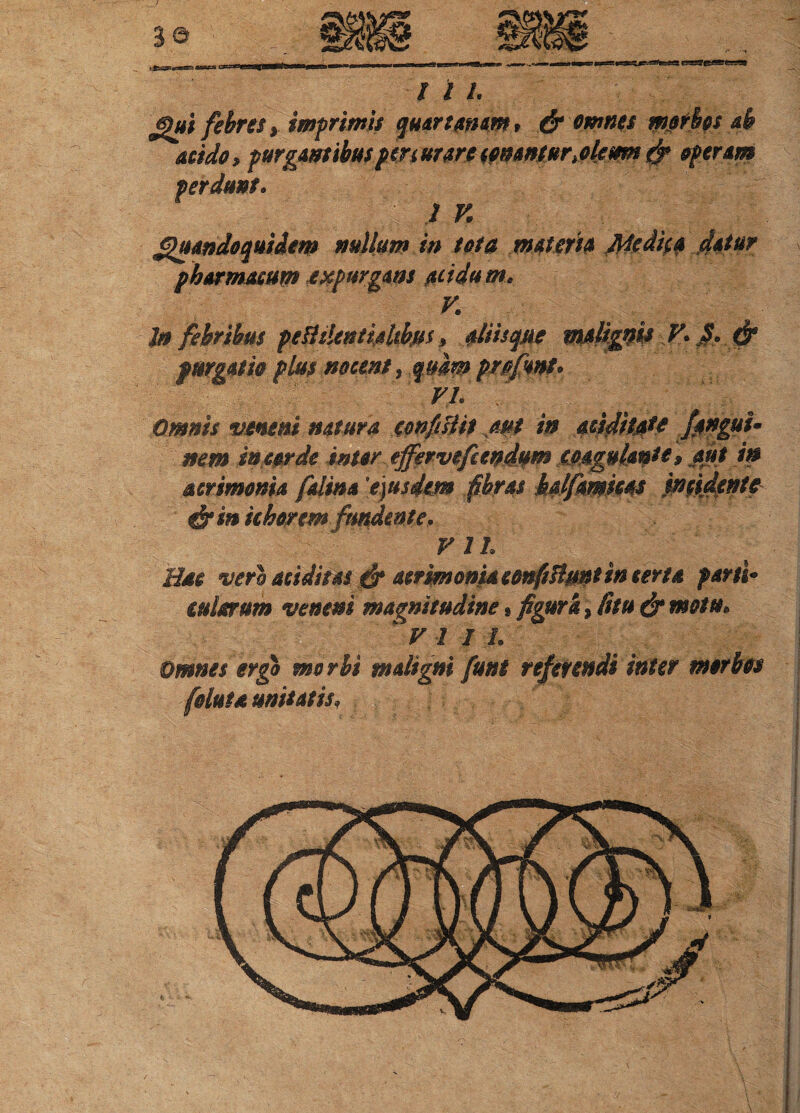 30
I I I.
Qui febres, imprimis quartanam, & omnes morbos ab
acido, purgantibus percurare conantur, oleum & operam
perdunt.
I V.
Quandoquidem nullum in tota materia Medica datur
pharmacum expurgans acidum.
V.
In febribus pestilentialibus, aliisque malignis V. S. &
purgatio plus nocent, quàm prosunt.
VI.
Omnis veneni natura consistit aut in aciditate sangui-
nem in corde inter effervescendum coagulante, aut in
acrimonia salina ejusdem fibras balsamicas incidente
& in ichorem fundente.
V I I.
Hæc verò aciditas & acrimonia consistunt in certa parti-
cularum veneni magnitudine, figurâ, situ & motu.
V I I I.
Omnes ergò morbi maligni sunt referendi inter morbos
soluta unitatis.